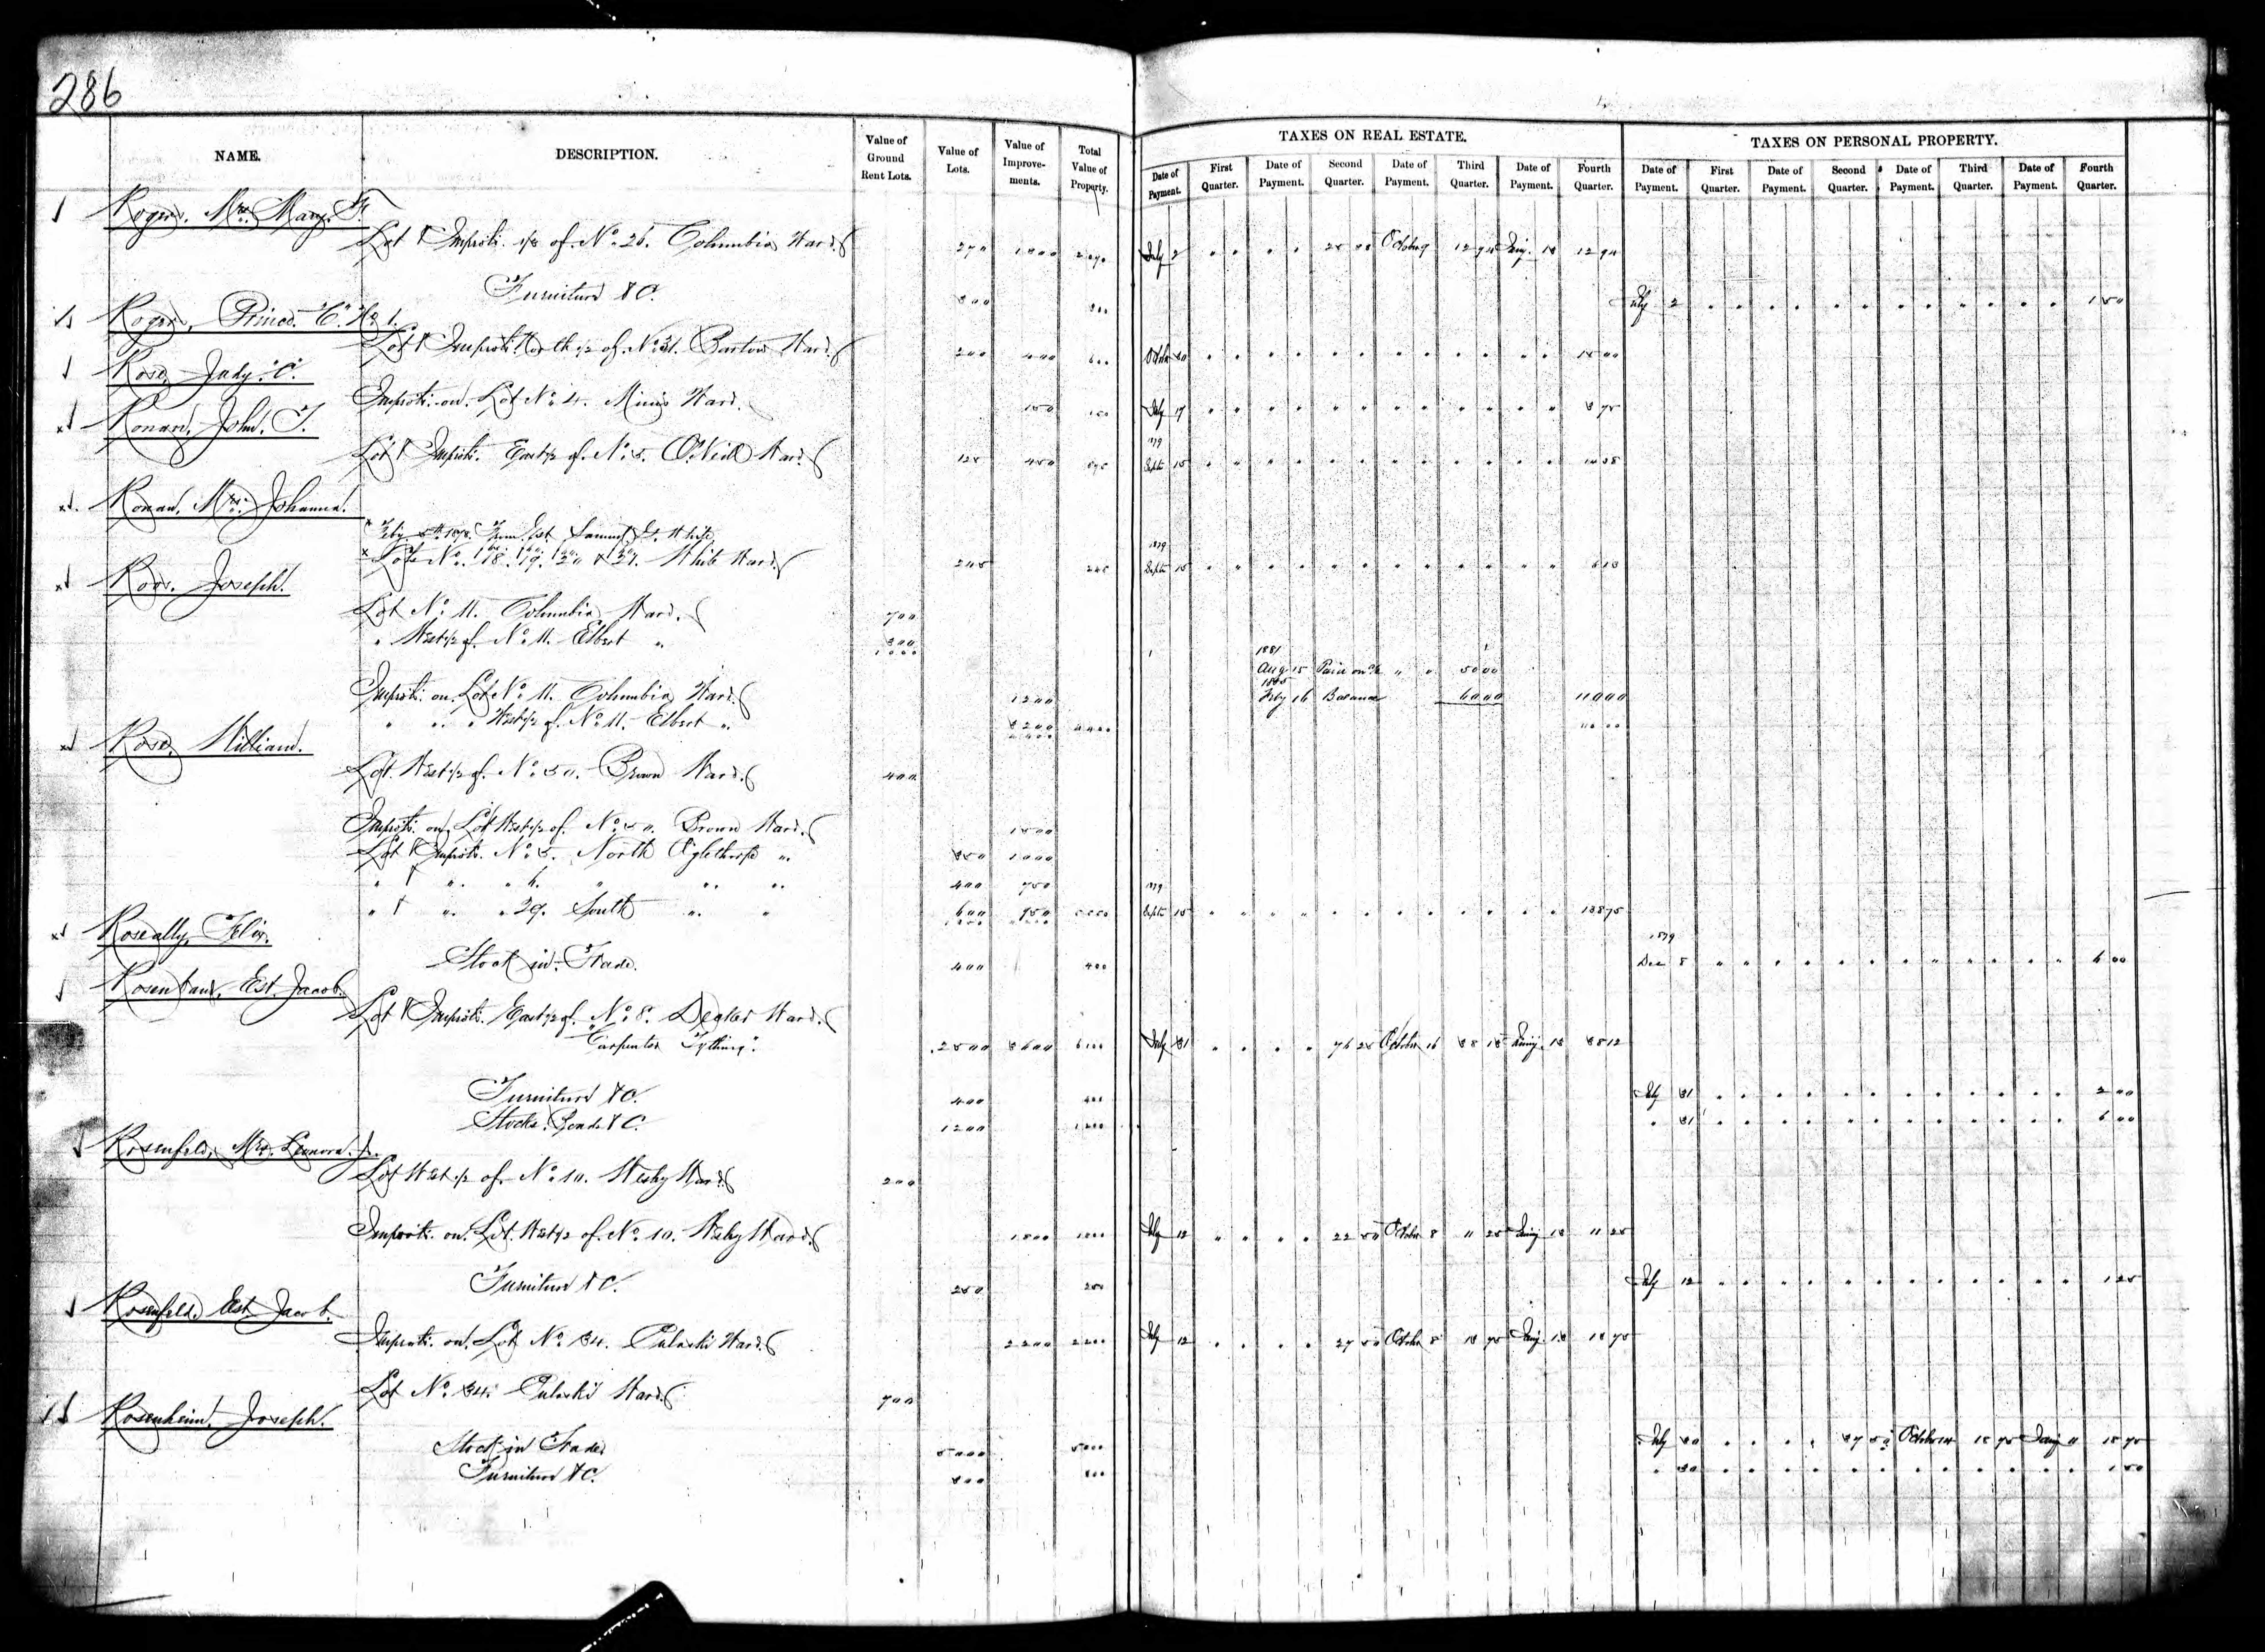 286
TAXES ON REAL ESTATE.
TAXES ON PERSONAL PROPERTY.
NAME. DESCRIPTION. Value of Ground Rent Lots. Value of Lots. Value of Improve-ments. Total Value of Property. Date of Payment. First Quarter. Date of Payment. Second Quarter. Date of Payment. Third Quarter. Date of Payment. Fourth Quarter. Date of Payment. First Quarter. Date of Payment. Second Quarter. Date of Payment. Third Quarter. Date of Payment. Fourth Quarter.
Rogers, Mrs. Mary
Lot & Improts. of No. 26. Columbia Ward. July 2 October 9 12 94 Jany. 12 94
Furniture &C. 300 300 July 2 1 50
Roger, Prince
Lot & Improts. North ½ of No. 31. Barton Ward. 200 400 600 15 00
Rose, Judy. C.
Improts. on Lot No. 4. Minis Ward. 150 150 July 17 3 75
Ronan, John. T.
1879
Lot & Improts. East ½ of No. 5. O'Neill Ward. 125 450 575 Septr 15 14 38
Ronan, Mrs. Johanna.
Feby 1878. From Est. Samuel White
1879
Lots No. 18. 19. 20 & 21. White Ward. 245 245 Septr 15 6 13
Roos, Joseph.
Lot No. 11. Columbia Ward. 700
" West ½ of No. 11. Elbert " 300
1000
1881
Aug 15 Paid on a/c " " 50 00
Improts. on Lot No. 11. Columbia Ward. 1200 Feby 16 Balance 60 00 110 00
" " " West ½ of No. 11. Elbert " 4400 110 00
Rose, William.
Lot West ½ of No. 50. Brown Ward. 400
Improts. on Lot West ½ of No. 50. Brown Ward. 1500
Lot & Improts. No. 5. North Oglethorpe " 350 1000
" & " " 6. " " " 400 750 1879
" & " " 29. South " " 600 950 Septr 15 138 75
Roseally, Felix.
1879
Stock in Trade. 400 400 Dec 5 6 00
Est. Jacob
Lot & Improts. East ½ of No. 8. Decker Ward.
"Carpenter Tything". 2500 3600 6100 July 31 76 25 October 16 38 13 Jany. 13 38 12
Furniture &C. 400 400 July 31 2 00
Stocks, Bonds &C. 1200 1200 " 31 6 00
Rosenfeld, Mrs. Leonora.
Lot West ½ of No. 10. Wesley Ward 200
Improts. on Lot West ½ of No. 10. Wesley Ward. July 12 22 50 October 8 11 25 Jany 13 11 25
Furniture &C. 250 250 July 12 1 25
Rosenfeld, Est. Jacob.
Improts. on Lot No. 34. Pulaski Ward. 2200 2200 July 12 27 50 October 8 13 75 Jany. 13 13 75
Lot No. 34. Pulaski Ward. 700
Rosenheim, Joseph.
Stock in Trade 5000 5000 July 30 37 50 October 14 18 75 Jany 18 75
Furniture &C. 300 300 " 30 1 50